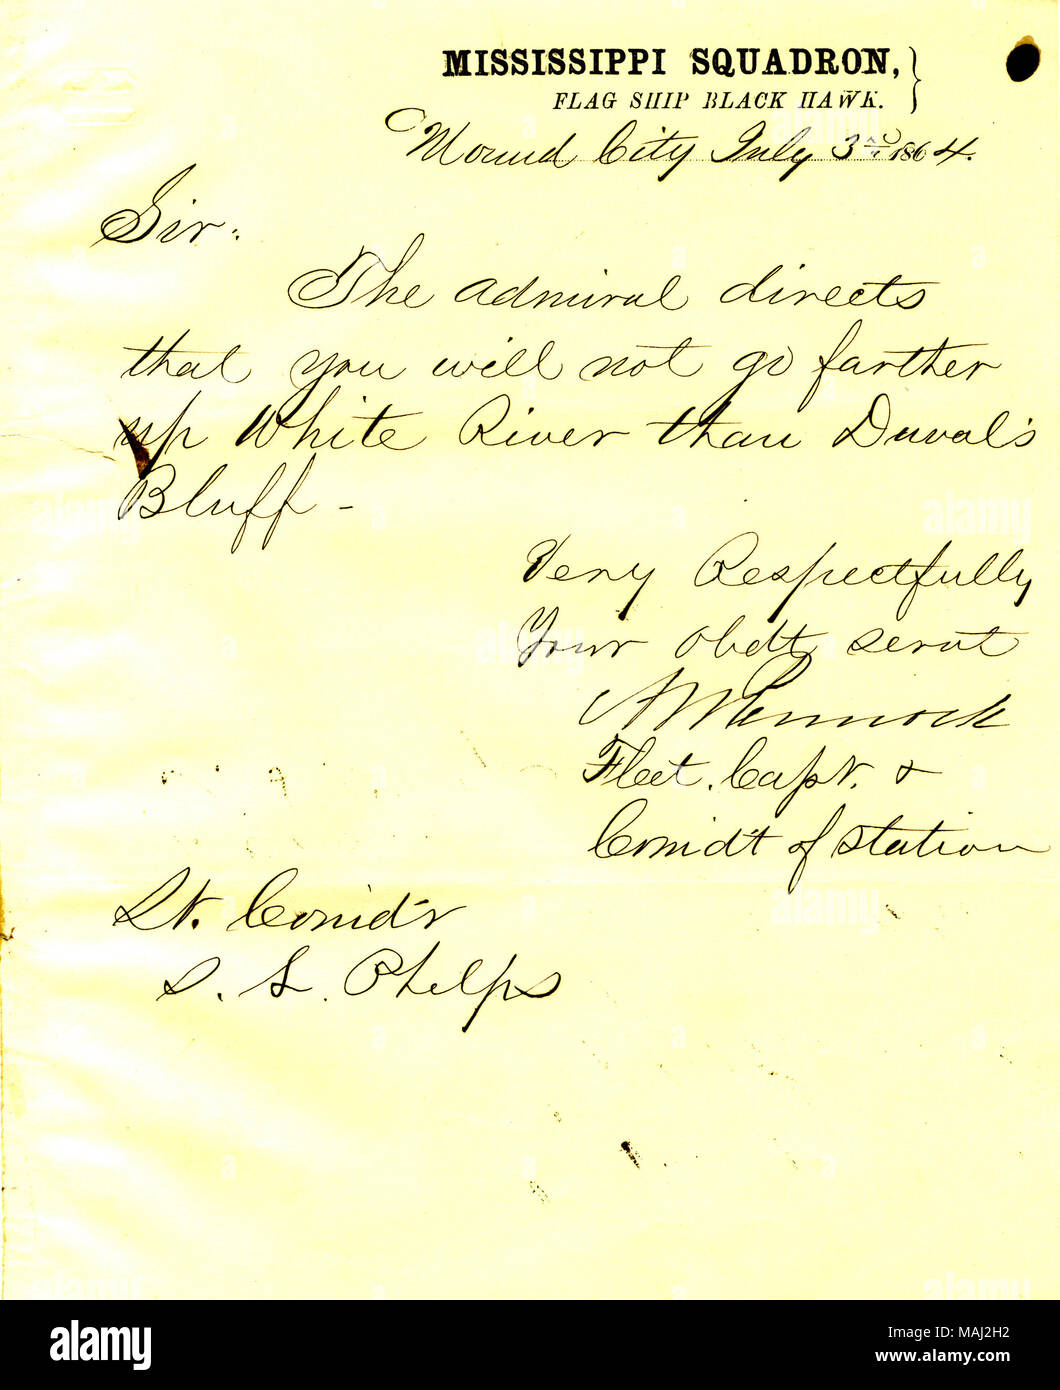 MISSISSIPPI SQUADRON,
FLAG SHIP BLACK HAWK.
Mound City July 3rd 1864.
Sir:
The Admiral directs
that you will not go farther
up White River than Duval's
Bluff -
Very Respectfully
Your obdt servt
A M Pennock
Fleet. Capt. &
Comdt of Station
Lt. Comdr
S. L. Phelps
alamy
Image ID: MAJ2H2
www.alamy.com